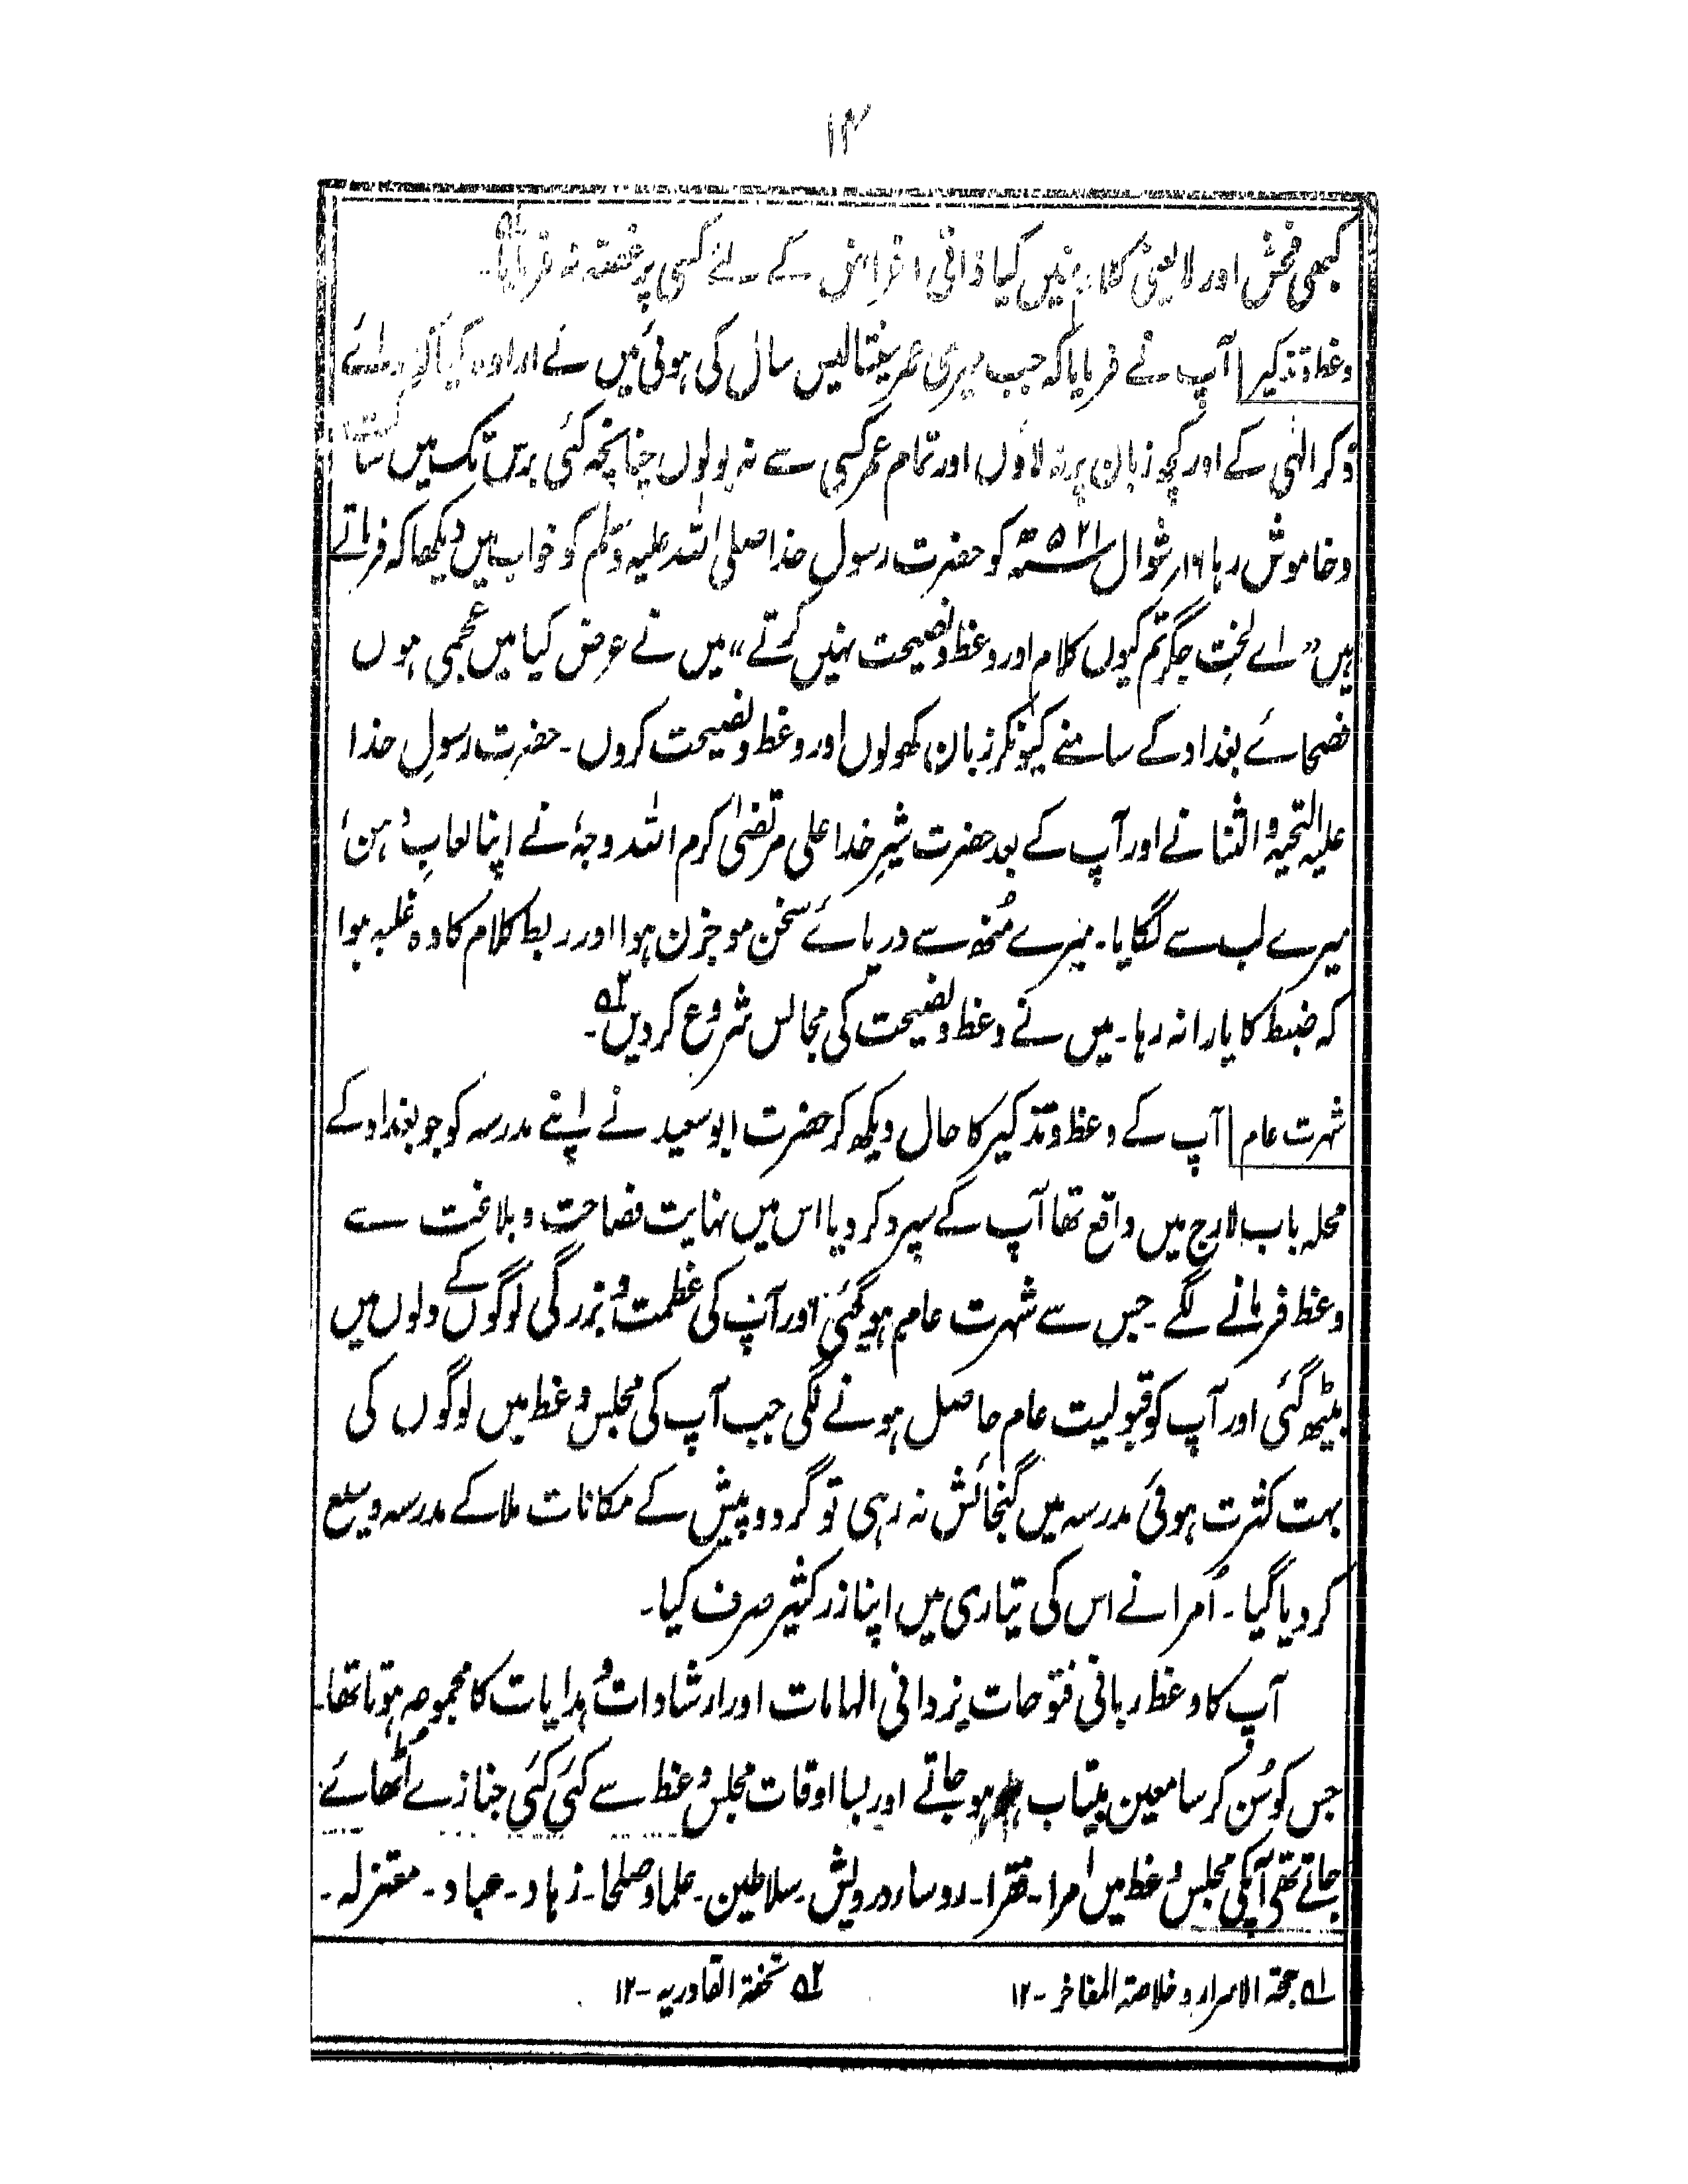 ۱۴
کبھی فحش اور لایعنی کلام نہیں کیا ذاتی اغراض کے لئے کسی پر غصّہ نہ فرمایا
وعظ و تذکیر آپ نے فرمایا کہ جب میری عمر پینتالیس سال کی ہوئی میں نے ارادہ کیا کہ سوائے
ذکر الٰہی کے اور کچھ زبان پر نہ لاؤں اور تمام عمر کسی سے نہ بولوں چنانچہ کئی برس تک میں ساکت
و خاموش رہا ۱۶ر شوال ۵۲۱ھ کو حضرت رسول خدا صلی اللہ علیہ وسلم کو خواب میں دیکھا کہ فرماتے
ہیں "اے لختِ جگر تم کیوں کلام اور وعظ و نصیحت نہیں کرتے" میں نے عرض کیا میں عجمی ہوں
فصحائے بغداد کے سامنے کیونکر زبان کھولوں اور وعظ و نصیحت کروں۔ حضرت رسولِ خدا
علیہ التحیہ و الثنا نے اور آپ کے بعد حضرت شیرِ خدا علی مرتضیٰ کرم اللہ وجہٗ نے اپنا لعابِ دہن
میرے لب سے لگایا۔ میرے مُنھ سے دریائے سخن موجزن ہوا اور ربط کلام کا وہ غلبہ ہوا
کہ ضبط کا یارا نہ رہا۔ میں نے وعظ و نصیحت کی مجالس شروع کر دیں ۲ھ۔
شہرت عام آپ کے وعظ و تذکیر کا حال دیکھ کر حضرت ابو سعید نے اپنے مدرسہ کو جو بغداد کے
محلہ باب لارج میں واقع تھا آپ کے سپرد کر دیا اس میں نہایت فصاحت و بلاغت سے
وعظ فرمانے لگے۔ جس سے شہرت عام ہو گئی اور آپ کی عظمت و بزرگی لوگوں کے دلوں میں
بیٹھ گئی اور آپ کو قبولیت عام حاصل ہونے لگی جب آپ کی مجلس وعظ میں لوگوں کی
بہت کثرت ہوئی مدرسہ میں گنجائش نہ رہی تو گرد و پیش کے مکانات ملا کے مدرسہ وسیع
کر دیا گیا۔ اُمرا نے اس کی تیاری میں اپنا زر کثیر صرف کیا۔
آپ کا وعظ ربانی فتوحات یزدانی الہامات اور ارشادات و ہدایات کا مجموعہ ہوتا تھا۔
جس کو سُن کر سامعین بیتاب ہو جاتے اور بسا اوقات مجلس وعظ سے کئی کئی جنازے اُٹھائے
جاتے تھے آپکی مجلس وعظ میں اُمرا۔ فقرا۔ روسا۔ درویش۔ سلاطین۔ علما و صلحا۔ زہاد۔ عباد۔ معتزلہ۔
۱ھ بہجۃ الاسرار و خلاصۃ المفاخر۔ ۱۲
۲ھ تحفۃ القادریہ۔ ۱۲